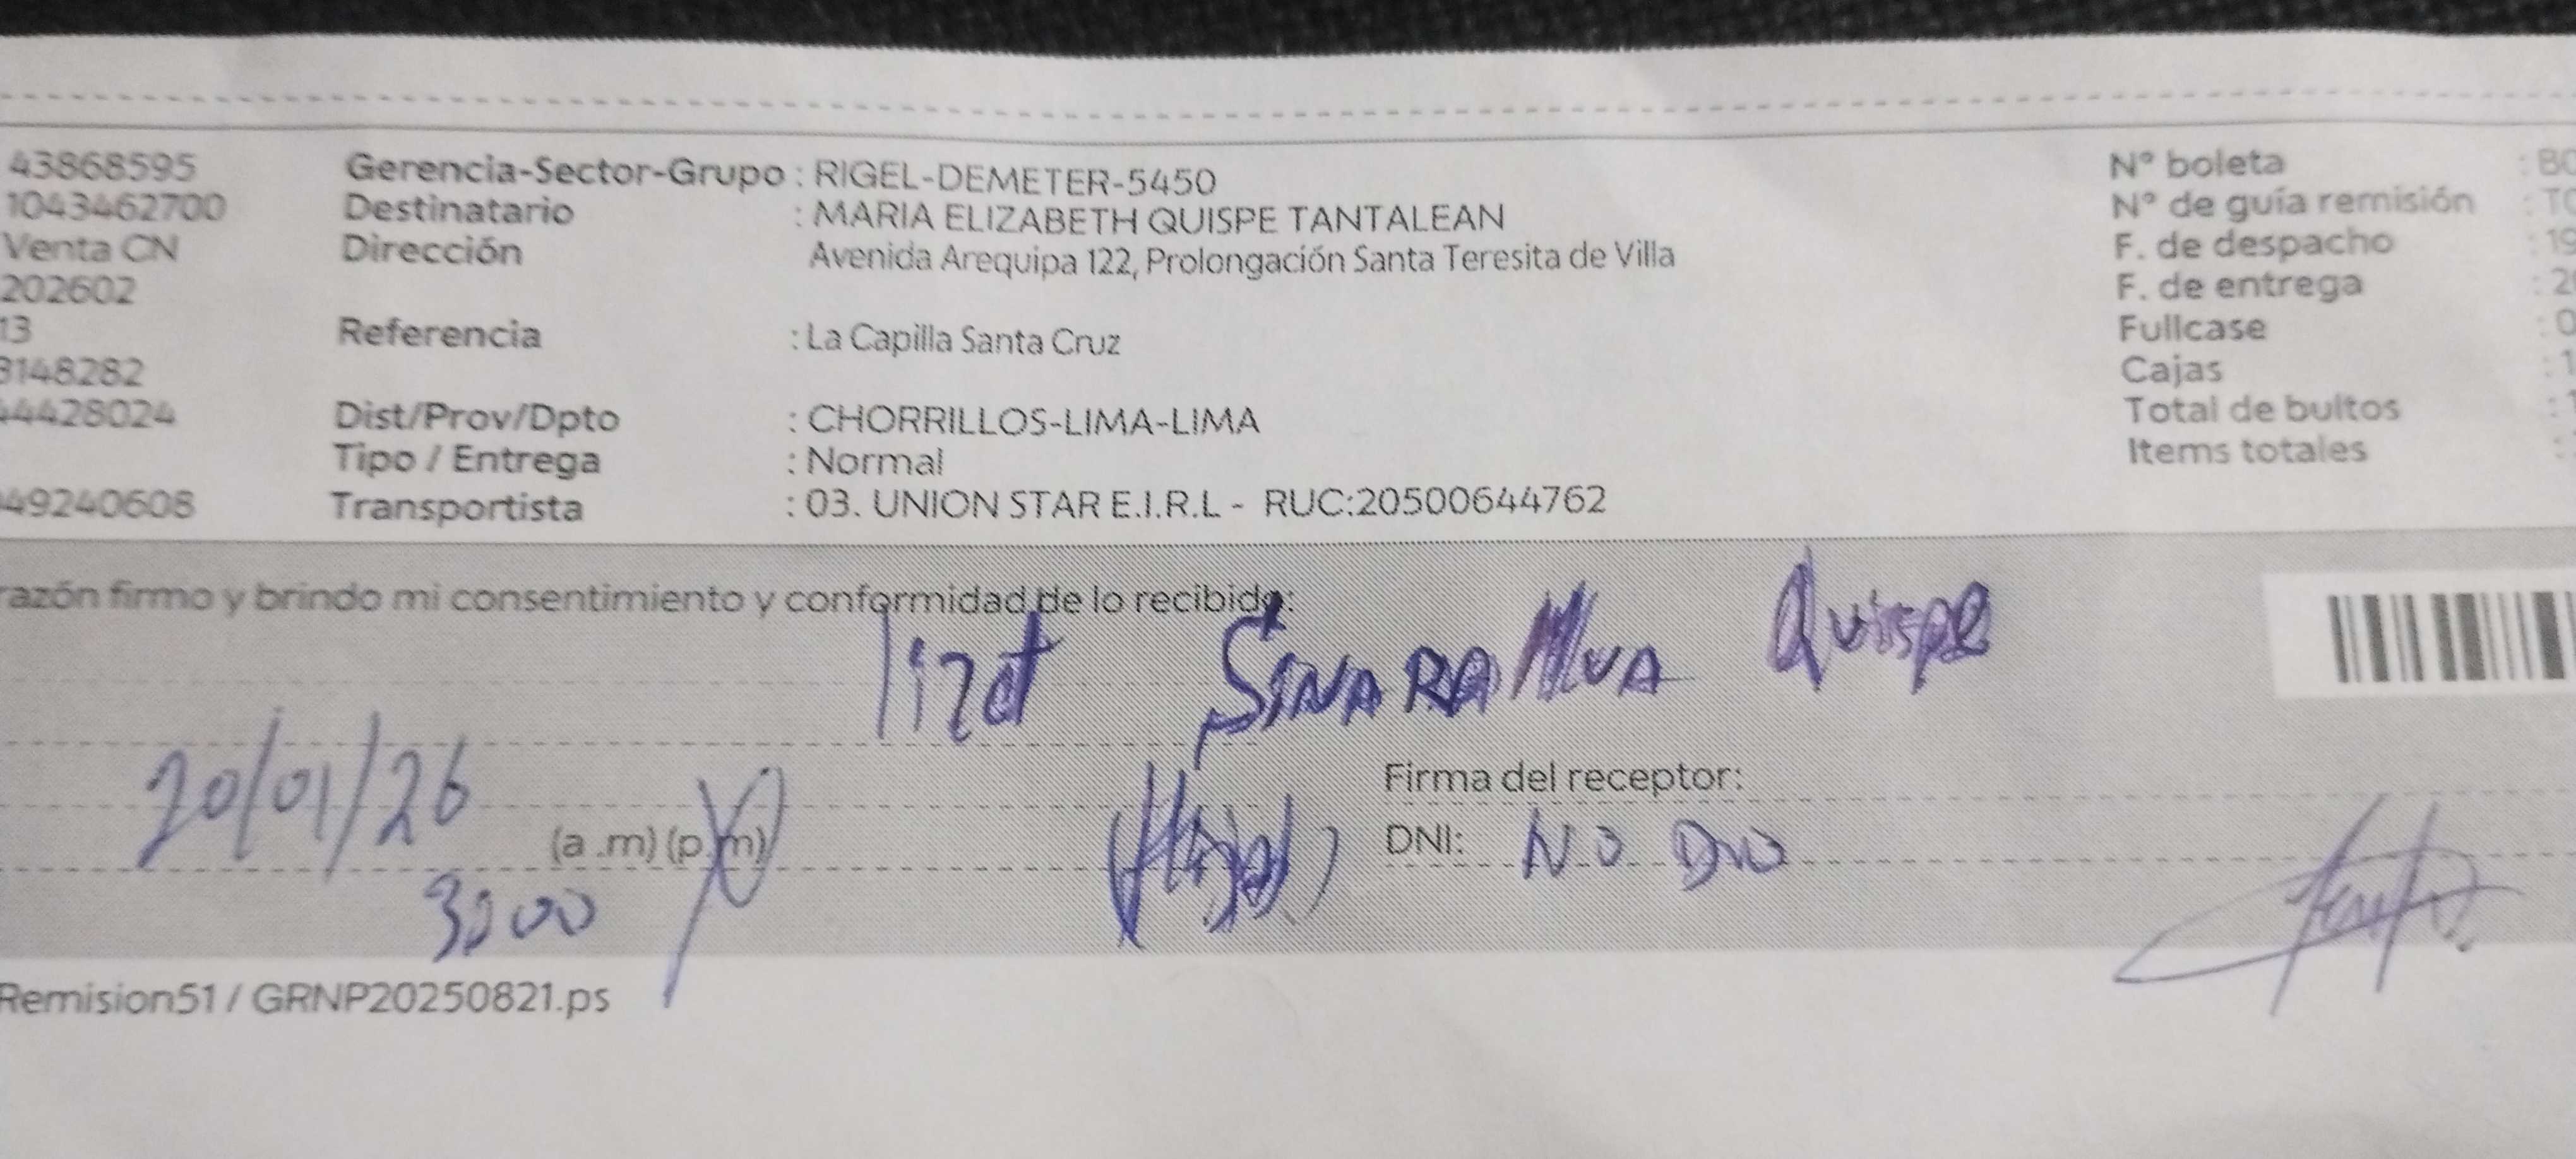 43868595 Gerencia-Sector-Grupo : RIGEL-DEMETER-5450 N° boleta
1043462700 Destinatario : MARIA ELIZABETH QUISPE TANTALEAN N° de guía remisión
Venta CN Dirección Avenida Arequipa 122, Prolongación Santa Teresita de Villa F. de despacho : 19
202602 F. de entrega
13 Referencia : La Capilla Santa Cruz Fullcase
3148282 Cajas
44428024 Dist/Prov/Dpto : CHORRILLOS-LIMA-LIMA Total de bultos
Tipo / Entrega : Normal Items totales
949240608 Transportista : 03. UNION STAR E.I.R.L - RUC:20500644762
razón firmo y brindo mi consentimiento y conformidad de lo recibido:
Quispe
Firma del receptor:
20/01/26
(a .m) (p.m) DNI: NO DIO
3:00
Remision51 / GRNP20250821.ps